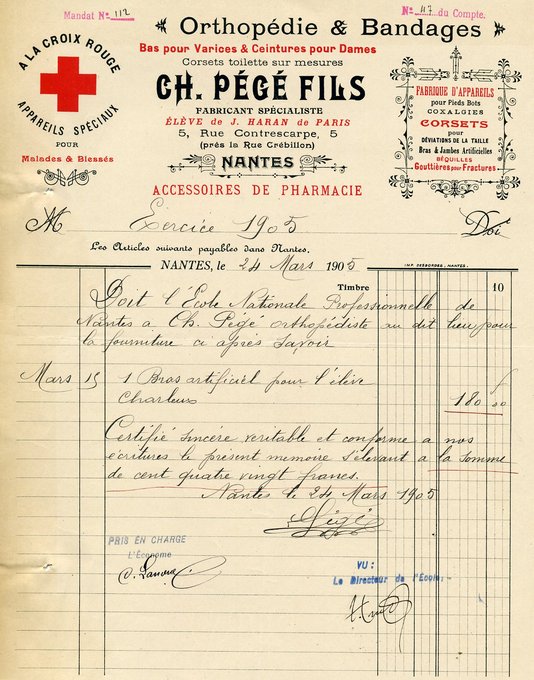 Mandat N° 112
N° 47 du Compte.
Orthopédie & Bandages
Bas pour Varices & Ceintures pour Dames
Corsets toilette sur mesures
CH. PÉGÉ FILS
FABRICANT SPÉCIALISTE
ÉLÈVE de J. HARAN de PARIS
5, Rue Contrescarpe, 5
(près la Rue Crébillon)
NANTES
ACCESSOIRES DE PHARMACIE
A LA CROIX ROUGE
APPAREILS SPÉCIAUX
POUR
Malades & Blessés
FABRIQUE D'APPAREILS
pour Pieds Bots
COXALGIES
CORSETS
pour
DÉVIATIONS DE LA TAILLE
Bras & Jambes Artificielles
BÉQUILLES
Gouttières pour Fractures
M Exercice 1905 Doit
Les Articles suivants payables dans Nantes.
NANTES, le 24 Mars 1905
IMP. DESBORDES, NANTES.
Timbre 10
Doit l'École Nationale Professionnelle de
Nantes a Ch. Pégé orthopédiste au dit lieu pour
la fourniture ci après savoir
Mars 15 1 Bras artificiel pour l'élève
180 f 00
Certifié sincère veritable et conforme a nos
écritures le présent memoire s'élevant a la somme
de cent quatre vingt francs.
Nantes le 24 Mars 1905
Pégé
PRIS EN CHARGE
L'Économe
VU :
Le Directeur de l'Ecole,